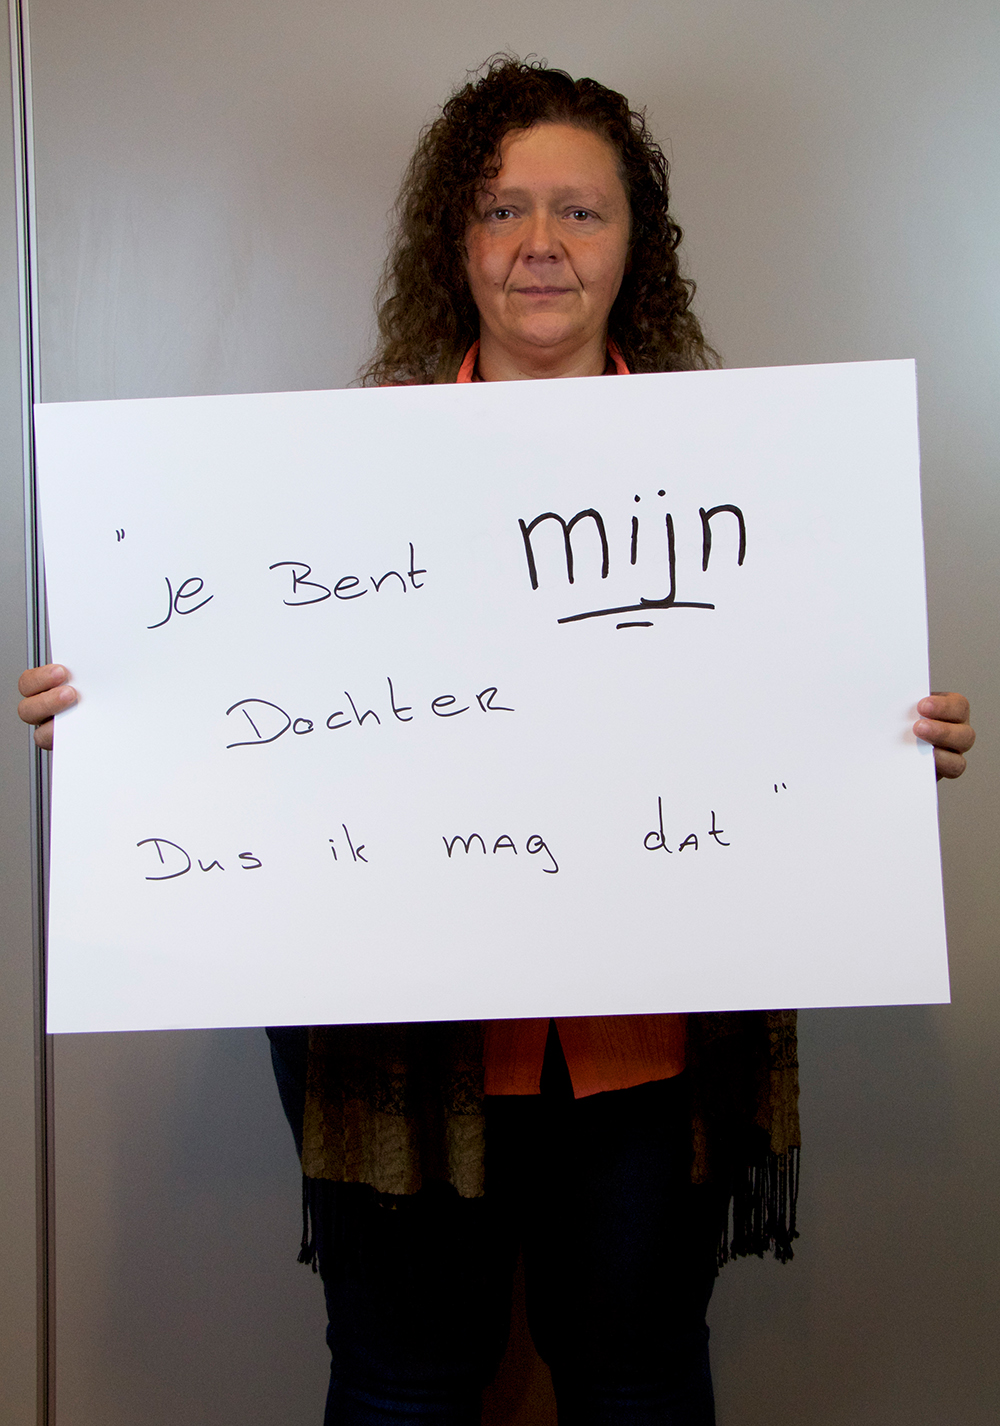 "Je Bent mijn
Dochter
Dus ik mag dat"